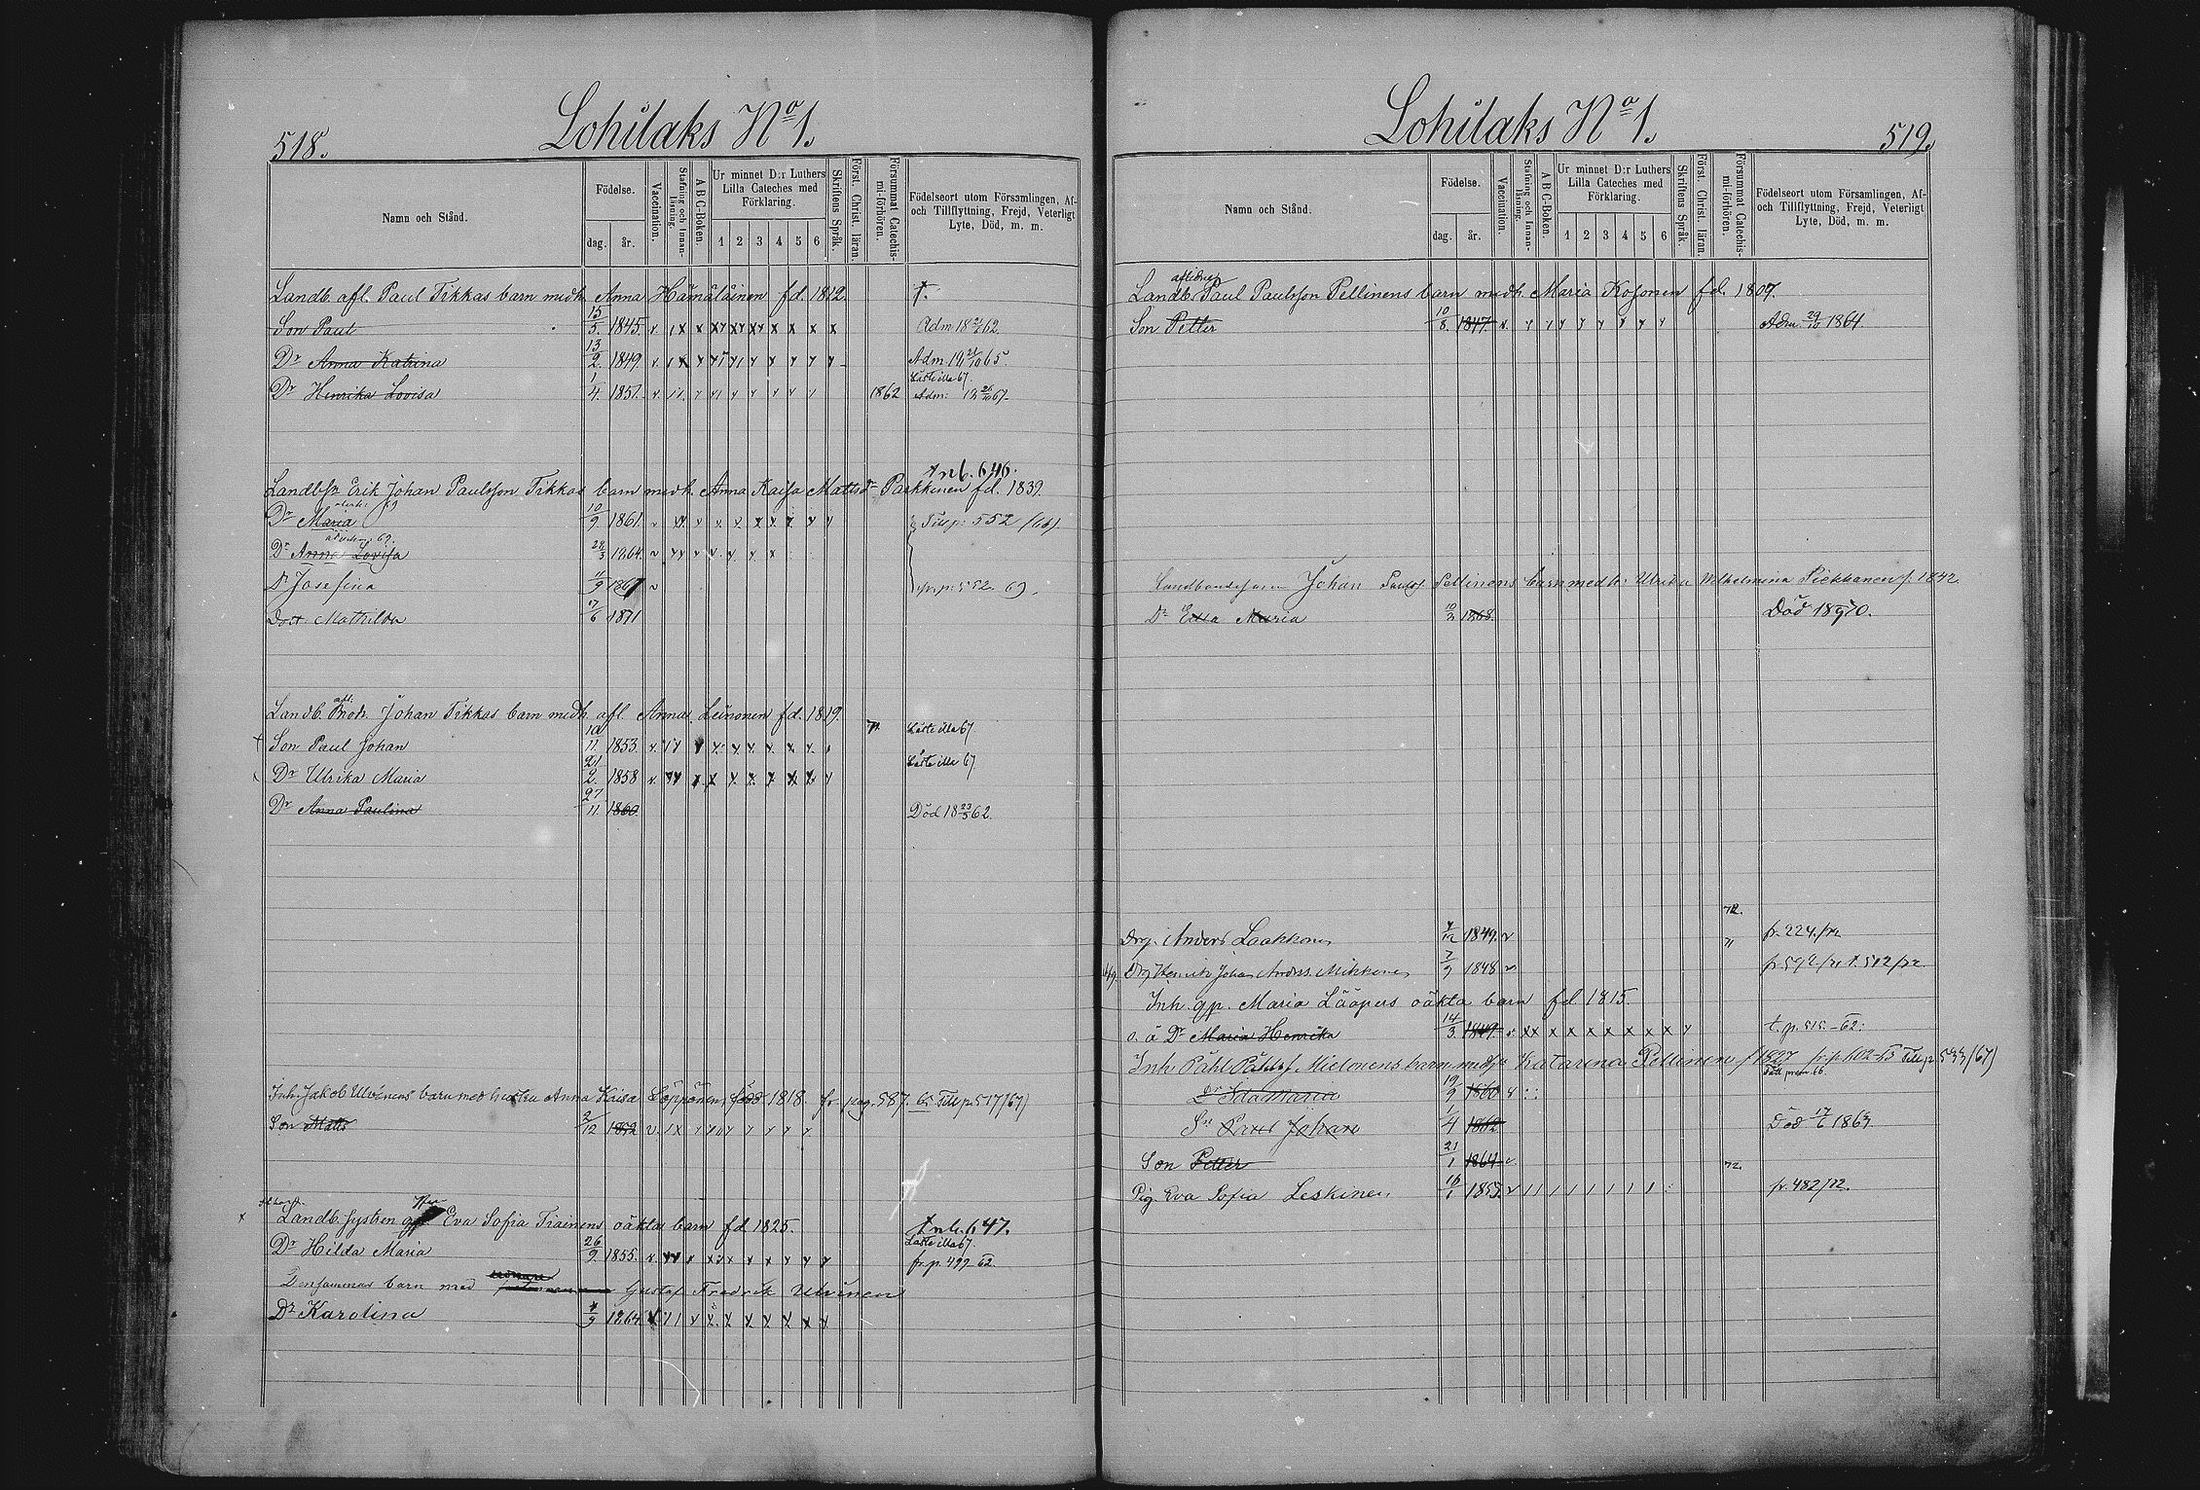 518.
Lohilaks No 1.
Namn och Stånd.
Födelse.
dag.
år.
Vaccination.
Stafning och Innanläsning.
A B C-Boken.
Ur minnet D:r Luthers Lilla Cateches med Förklaring.
1 2 3 4 5 6
Skriftens Språk.
Först. Christ. läran.
Försummat Catechismi-förhören.
Födelseort utom Församlingen, Af- och Tillflyttning, Frejd, Veterligt Lyte, Död, m. m.
Landb. afl. Paul Tikkas barn medh. Anna Hämäläinen fd. 1812. †.
Son Paul 15/5. 1845. Adm 62
Dr Anna Katrina 13/2. 1849. Adm. 65
Läste illa 67.
Dr Henrika Lovisa 1/4. 1851. 1862 Adm: 67
† nb. 646.
Landbsn Erik Johan Paulsson Tikkas barn medh. Anna Kaisa Mattsdr Parkkinen fd. 1839.
Dr Maria 10/9 1861. Till p. 552
Dr Anna Lovisa 28/3 1864
Dr Josefina 11/9 1867 fr. p. 552 69.
Dott Mathilda 17/6 1871
Landb. afl. Brodr. Johan Tikkas barn medh. afl. Anna Leinonen fd. 1819.
Son Paul Johan 10/11. 1853 Läste illa 67
Dr Ulrika Maria 21/2. 1858 Läste illa 67
Dr Anna Paulina 27/11. 1860 Död 18 23/5 62.
Inh. Jakob Ulvinens barn med hustru Anna Krisa Löppönen född 1818. fr. pag. 587. 65 Till p 517/67)
Son Matts 2/12 1852
Landb. systren Eva Sofia Tiainens oäkta barn fd 1825. † nb. 647.
Läste illa 67
Dr Hilda Maria 26/9. 1855. fr. p. 499 62.
Densammas barn med Gustaf Fredrik Ulvinen
Dr Karolina 4/9 1864
Lohilaks No 1.
519.
Namn och Stånd.
Födelse.
dag.
år.
Vaccination.
Stafning och Innanläsning.
A B C-Boken.
Ur minnet D:r Luthers Lilla Cateches med Förklaring.
1 2 3 4 5 6
Skriftens Språk.
Först. Christ. läran.
Försummat Catechismi-förhören.
Födelseort utom Församlingen, Af- och Tillflyttning, Frejd, Veterligt Lyte, Död, m. m.
Landb. aflidne Paul Paulsson Pellinens barn medh. Maria Kosonen fd. 1807.
Son Petter 10/8. 1847. Adm. 29/10 1864.
Landbondesonen Johan Paulss. Pellinens barn medh: Ulrika Wilhelmina Piekkanen f. 1842.
Dr Edla Maria 10/3 1868. Död 1870.
72.
Drg. Anders Laakkonen 4/12 1849. fr. 224./72
Drg Henrik Johan Anderss. Mikkinen 7/9 1848 fr 592/71 t. 512/72
Inh. qp. Maria Lääperis oäkta barn fd 1815.
o. ä Dr Maria Henrika 14/3. 1849. t. p. 515.–62.
Inh. Påhl Påhlss. Mielonens barn medh. Katarina Pellinen f 1827 fr. p. 602–65 Till p 533/67)
Dr Ida Maria 19/9 1860
Sn Paul Johan 1/4 1862 Död 17/6 1863
Son Petter 21/1 1864 72.
Pig Eva Sofia Leskinen 16/1 1855. fr. 482/72.